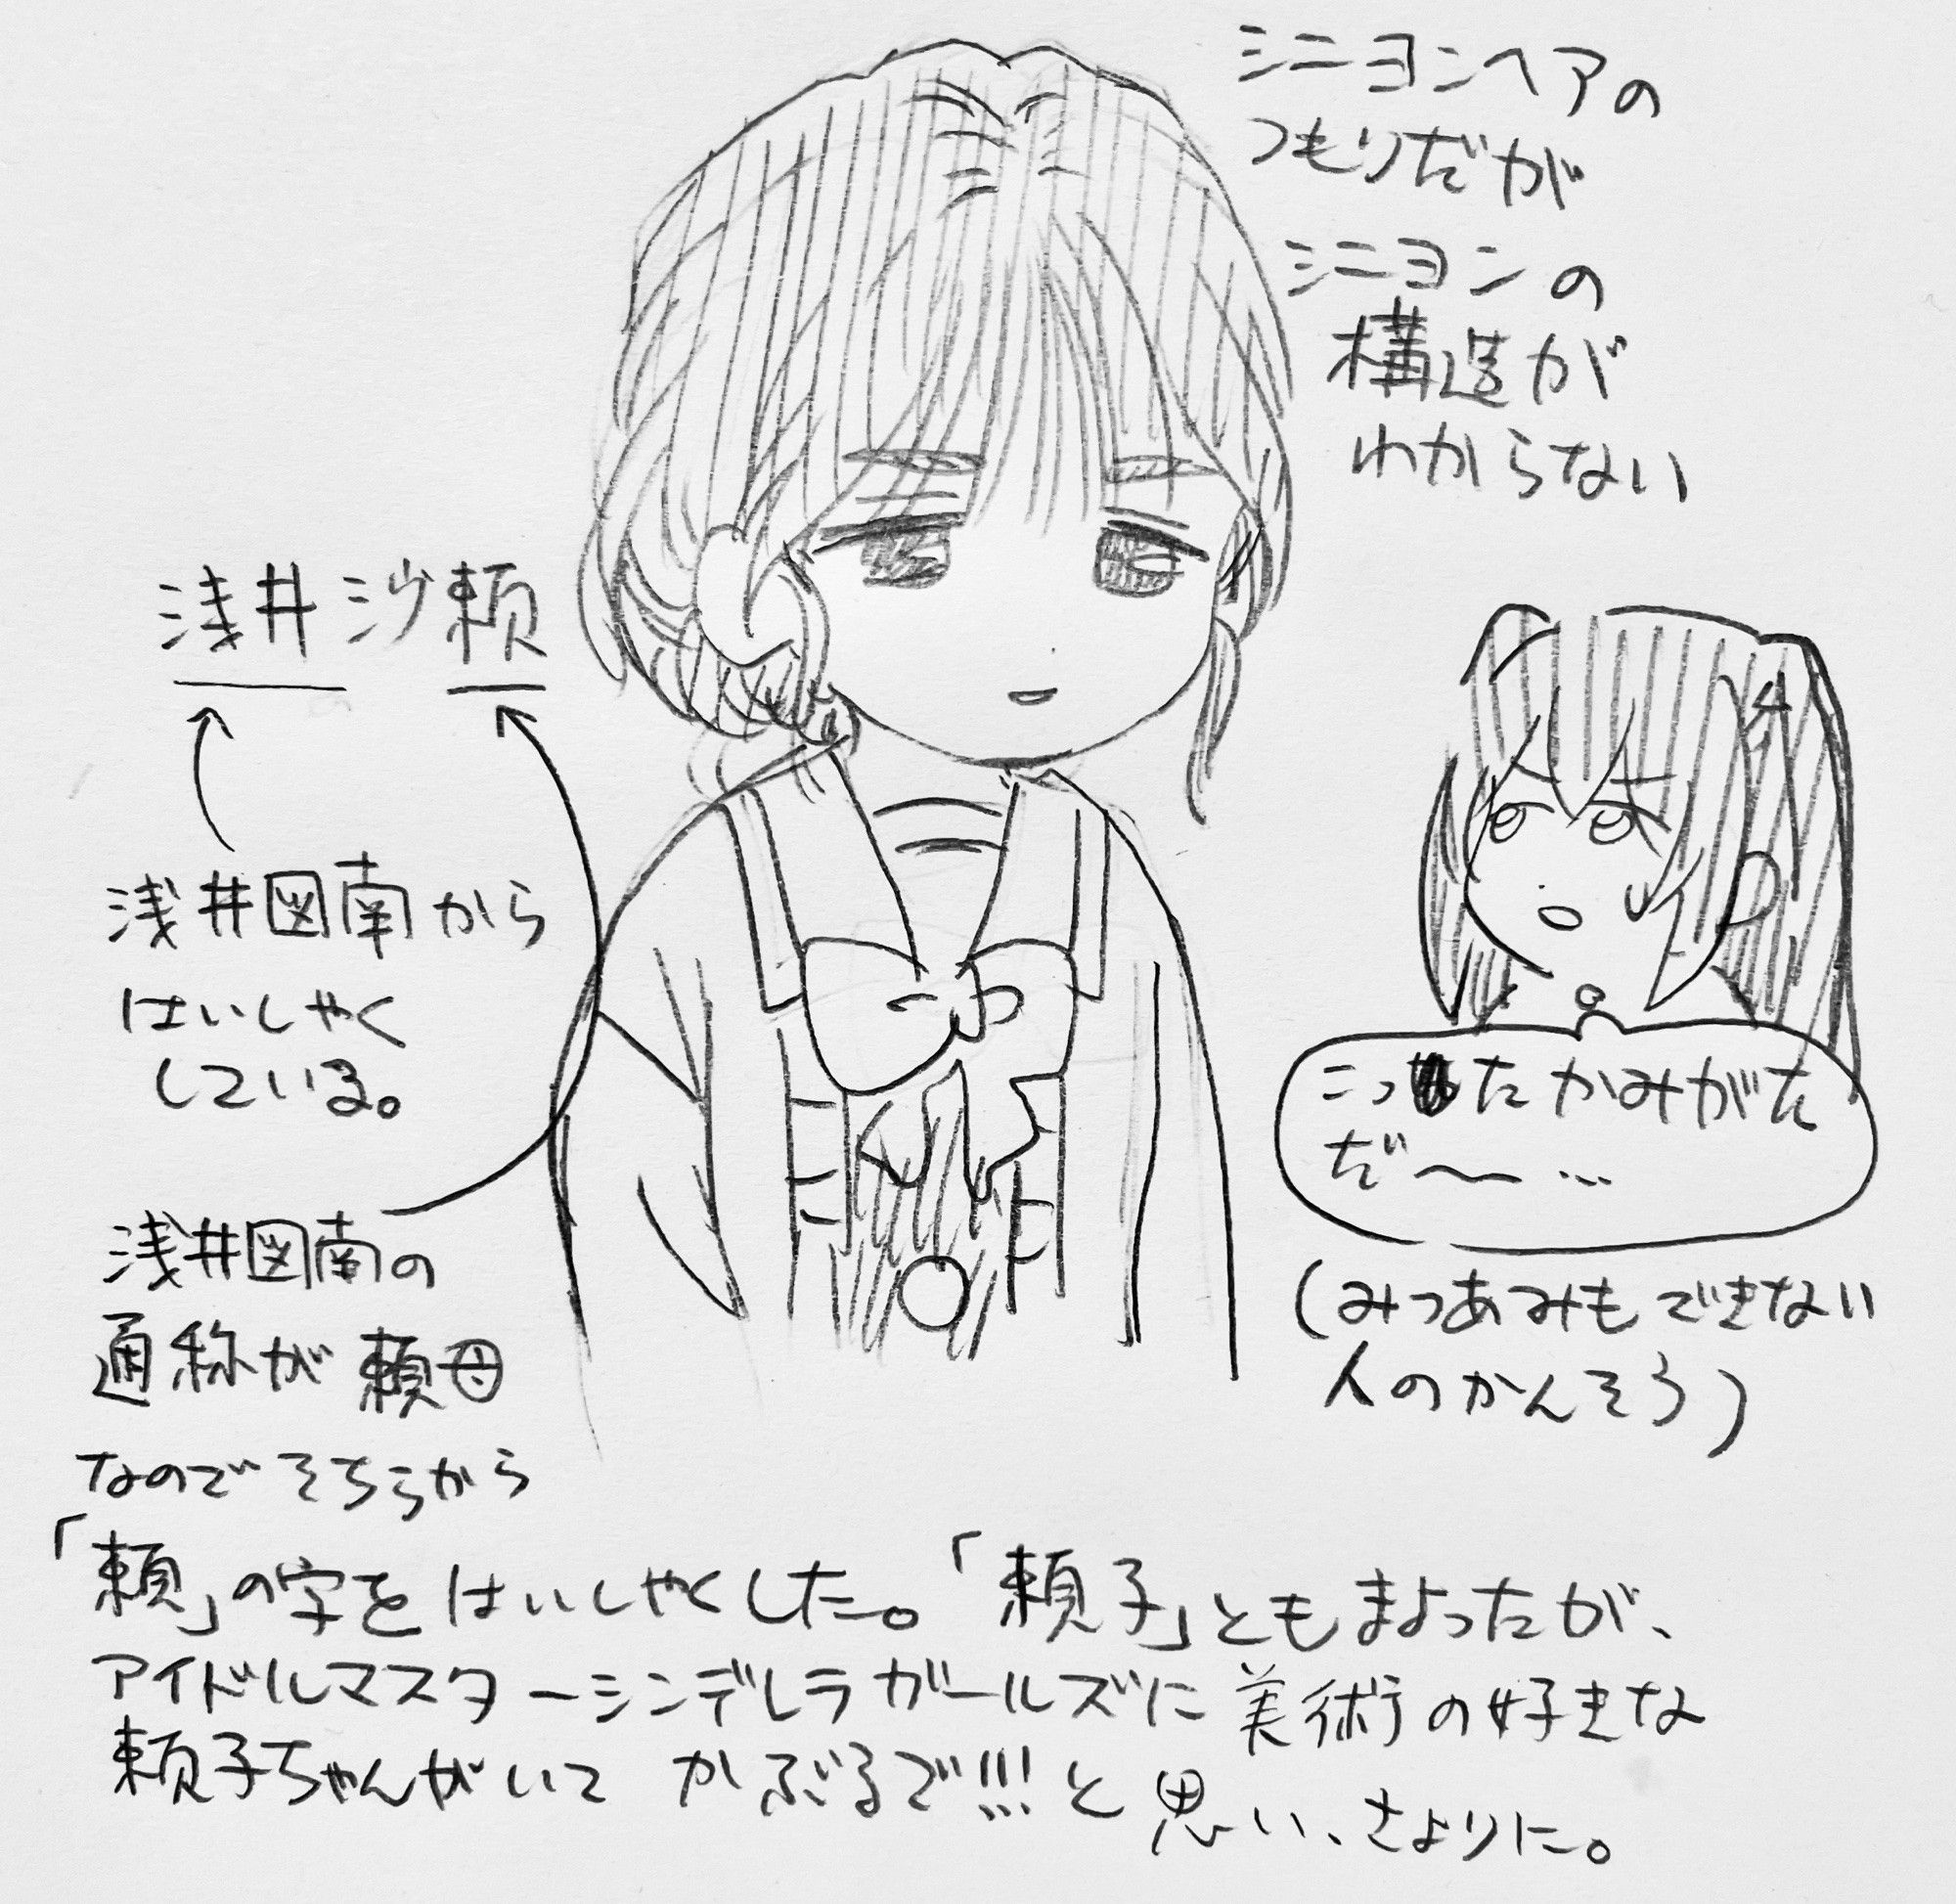 シニヨンヘアの
つもりだが
シニヨンの
構造が
わからない
浅井沙頼
浅井図南から
はいしゃく
している。
浅井図南の
通称が頼母
なのでそちらから
「頼」の字をはいしゃくした。「頼子」ともまよったが、
アイドルマスターシンデレラガールズに美術の好きな
頼子ちゃんがいて かぶるで!!!と思い、さよりに。
こったかみがた
だ〜…
(みつあみもできない
人のかんそう)